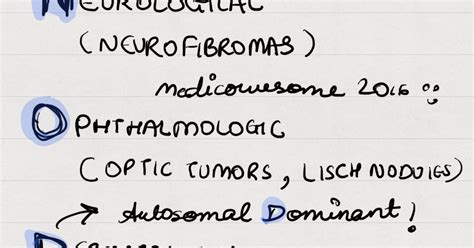 NEUROLOGICAL
(NEUROFIBROMAS)
medicowesome 2016
OPHTHALMOLOGIC
(OPTIC TUMORS, LISCH NODULES)
→ Autosomal Dominant!